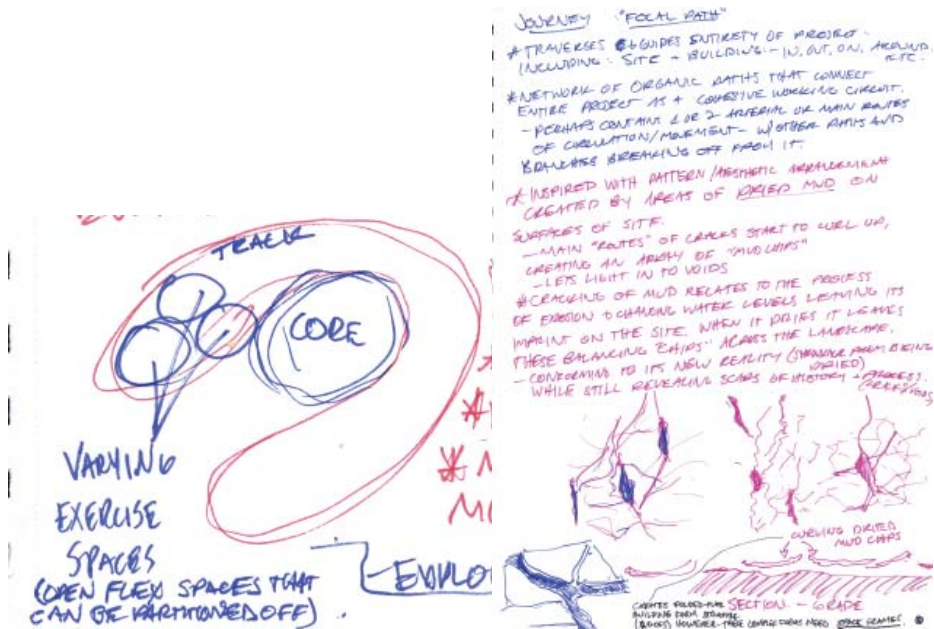 TRACK
CORE
VARYING
EXERCISE
SPACES
(OPEN FLEX SPACES THAT
CAN BE PARTITIONED OFF).
JOURNEY "FOCAL PATH"
* TRAVERSES & GUIDES ENTIRETY OF PROJECT -
INCLUDING: SITE + BUILDING - IN, OUT, ON, AROUND
ETC.
* NETWORK OF ORGANIC PATHS THAT CONNECT
ENTIRE PROJECT AS A COHESIVE WORKING CIRCUIT.
- PERHAPS CONTAINS 1 OR 2 ARTERIAL OR MAIN ROUTES
OF CIRCULATION/MOVEMENT - W/ OTHER PATHS AND
BRANCHES BREAKING OFF FROM IT.
* INSPIRED WITH PATTERN/AESTHETIC ARRANGEMENT
CREATED BY AREAS OF DRIED MUD ON
SURFACES OF SITE.
- MAIN "ROUTES" OF CRACKS START TO CURL UP,
CREATING AN ARRAY OF "MUD CHIPS"
- LETS LIGHT IN TO VOIDS
* CRACKING OF MUD RELATES TO THE PROCESS
OF EROSION + CHANGING WATER LEVELS LEAVING ITS
IMPRINT ON THE SITE. WHEN IT DRIES IT LEAVES
THESE BALANCING "CHIPS" ACROSS THE LANDSCAPE.
- CONFORMING TO ITS NEW REALITY ( FROM BEING
DRIED)
WHILE STILL REVEALING SCARS OF HISTORY + PROCESS.
CURLING DRIED
MUD CHIPS
SECTION - GRADE
BUILDING FORM
HOWEVER THESE COMPLEX FORMS NEED SPACE FRAMES.